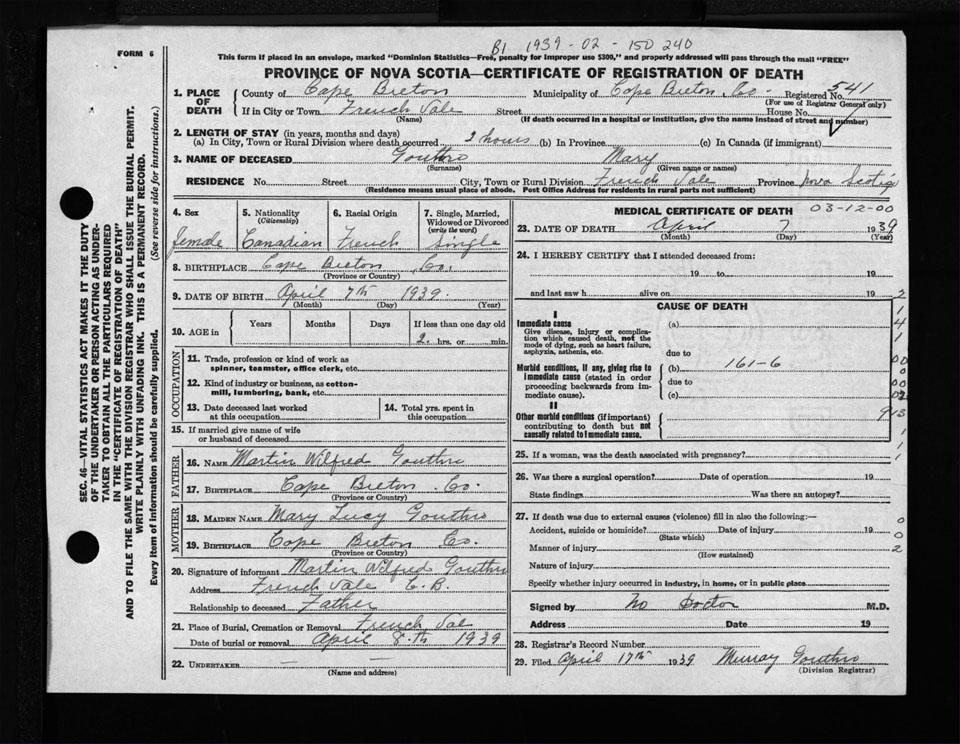 B1 1939-02-150 240
FORM 6
This form if placed in an envelope, marked "Dominion Statistics—Free, penalty for improper use $300," and properly addressed will pass through the mail "FREE"
PROVINCE OF NOVA SCOTIA—CERTIFICATE OF REGISTRATION OF DEATH
1. PLACE OF DEATH County of Cape Breton Municipality of Cape Breton Co. Registered No. 541
(For use of Registrar General only)
If in City or Town French Vale Street House No.
(Name) (If death occurred in a hospital or institution, give the name instead of street and number)
2. LENGTH OF STAY (in years, months and days)
(a) In City, Town or Rural Division where death occurred 2 hours (b) In Province (c) In Canada (if immigrant)
3. NAME OF DECEASED Gouthro Mary
(Surname) (Given name or names)
RESIDENCE No. Street City, Town or Rural Division French Vale Province Nova Scotia
(Residence means usual place of abode. Post Office Address for residents in rural parts not sufficient)
4. Sex 5. Nationality (Citizenship) 6. Racial Origin 7. Single, Married, Widowed or Divorced (write the word)
female Canadian French Single
8. BIRTHPLACE Cape Breton Co.
(Province or Country)
9. DATE OF BIRTH April 7th 1939.
(Month) (Day) (Year)
10. AGE in Years Months Days If less than one day old
2 hrs. or min.
OCCUPATION
11. Trade, profession or kind of work as spinner, teamster, office clerk, etc.
12. Kind of industry or business, as cotton-mill, lumbering, bank, etc.
13. Date deceased last worked at this occupation
14. Total yrs. spent in this occupation
15. If married give name of wife or husband of deceased
FATHER
16. NAME Martin Wilfred Gouthro
17. BIRTHPLACE Cape Breton Co.
(Province or Country)
MOTHER
18. MAIDEN NAME Mary Lucy Gouthro
19. BIRTHPLACE Cape Breton Co.
(Province or Country)
20. Signature of informant Martin Wilfred Gouthro
Address French Vale C. B.
Relationship to deceased Father
21. Place of Burial, Cremation or Removal French Val
Date of burial or removal April 8th 1939
22. UNDERTAKER — —
(Name and address)
MEDICAL CERTIFICATE OF DEATH 03-12-00
23. DATE OF DEATH April 7 1939
(Month) (Day) (Year)
24. I HEREBY CERTIFY that I attended deceased from:
19 to 19
and last saw h alive on 19
CAUSE OF DEATH
I
Immediate cause (a)
Give disease, injury or complication which caused death, not the mode of dying, such as heart failure, asphyxia, asthenia, etc.
due to
Morbid conditions, if any, giving rise to immediate cause (stated in order proceeding backwards from immediate cause).
(b) 161-6
due to
(c)
II
Other morbid conditions (if important) contributing to death but not causally related to immediate cause.
25. If a woman, was the death associated with pregnancy?
26. Was there a surgical operation? Date of operation 19
State findings Was there an autopsy?
27. If death was due to external causes (violence) fill in also the following:—
Accident, suicide or homicide? Date of injury 19
(State which)
Manner of injury
(How sustained)
Nature of injury
Specify whether injury occurred in industry, in home, or in public place
Signed by No Doctor M.D.
Address Date 19
28. Registrar's Record Number
29. Filed April 17th 1939 Murray Gouthro
(Division Registrar)
SEC. 46—VITAL STATISTICS ACT MAKES IT THE DUTY
OF THE UNDERTAKER OR PERSON ACTING AS UNDER-
TAKER TO OBTAIN ALL THE PARTICULARS REQUIRED
IN THE "CERTIFICATE OF REGISTRATION OF DEATH"
AND TO FILE THE SAME WITH THE DIVISION REGISTRAR WHO SHALL ISSUE THE BURIAL PERMIT.
WRITE PLAINLY WITH UNFADING INK. THIS IS A PERMANENT RECORD.
Every item of information should be carefully supplied. (See reverse side for instructions.)